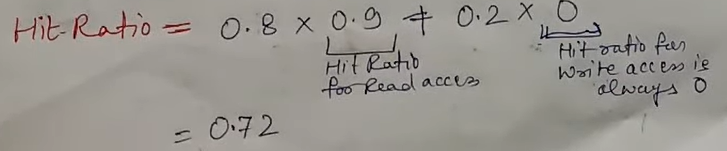 Hit-Ratio = 0.8 × 0.9 + 0.2 × 0
Hit Ratio
for Read access
Hit ratio for
Write access is
always 0
= 0.72